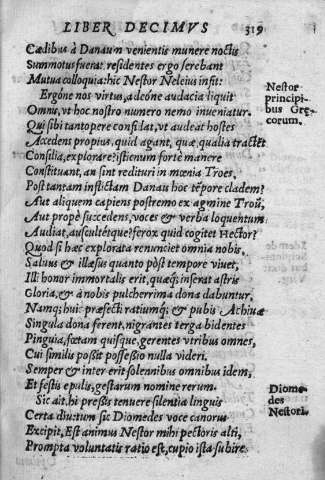 LIBER DECIMVS 319
Cædibus à Danaum venientis munere noctis
Summotus fuerat. residentes ergo serebant
Mutua colloquia: hic Nestor Neleius insit:
Ergóne nos virtus, adeóne audacia liquit
Omnis, vt hoc nostro numero nemo inueniatur.
Qui sibi tantopere confidat, vt audeat hostes
Accedens propius, quid agant, quæ, qualia tractẽt
Consilia, explorare? istic enim forte manere
Constituant, an sint redituri in mœnia Troes,
Post tantam inflictam Danau hoc tẽpore cladem?
Aut aliquem capiens postremo ex agmine Troũ,
Aut propè succedens, voces & verba loquentum
Audiat, auscultétque? ferox quid cogitet Hector?
Quod si hæc explorata renunciet omnia nobis,
Saluus & illæsus quanto pòst tempore viuet,
Illi honor immortalis erit, quæq; inserat astris
Gloria, & à nobis pulcherrima dona dabuntur,
Namq; huic præfecti ratiumq; & pubis Achiuæ
Singula dona ferent, nigrantes terga bidentes
Pinguia, fœtam quisque, gerentes vtribus omnes,
Cui similis poßit possessio nulla videri.
Semper & inter erit solennibus omnibus idem,
Et festis epulis, gestarum nomine rerum.
Sic ait. hi preßis tenuere silentia linguis
Certa diu: tum sic Diomedes voce canorus
Excipit, Est animus Nestor mihi pectoris alti,
Prompta voluntatis ratio est, cupio ista subire
Nestor
principi-
bus Græ-
corum.
Diome-
des
Nestori.